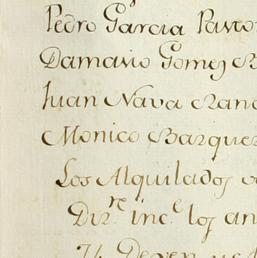 Pedro Garcia Pasto
Damasio Gomez B
Juan Nava
Monico Barquer
Los Alquilados
Dir.re inc.e los an
Y Deven